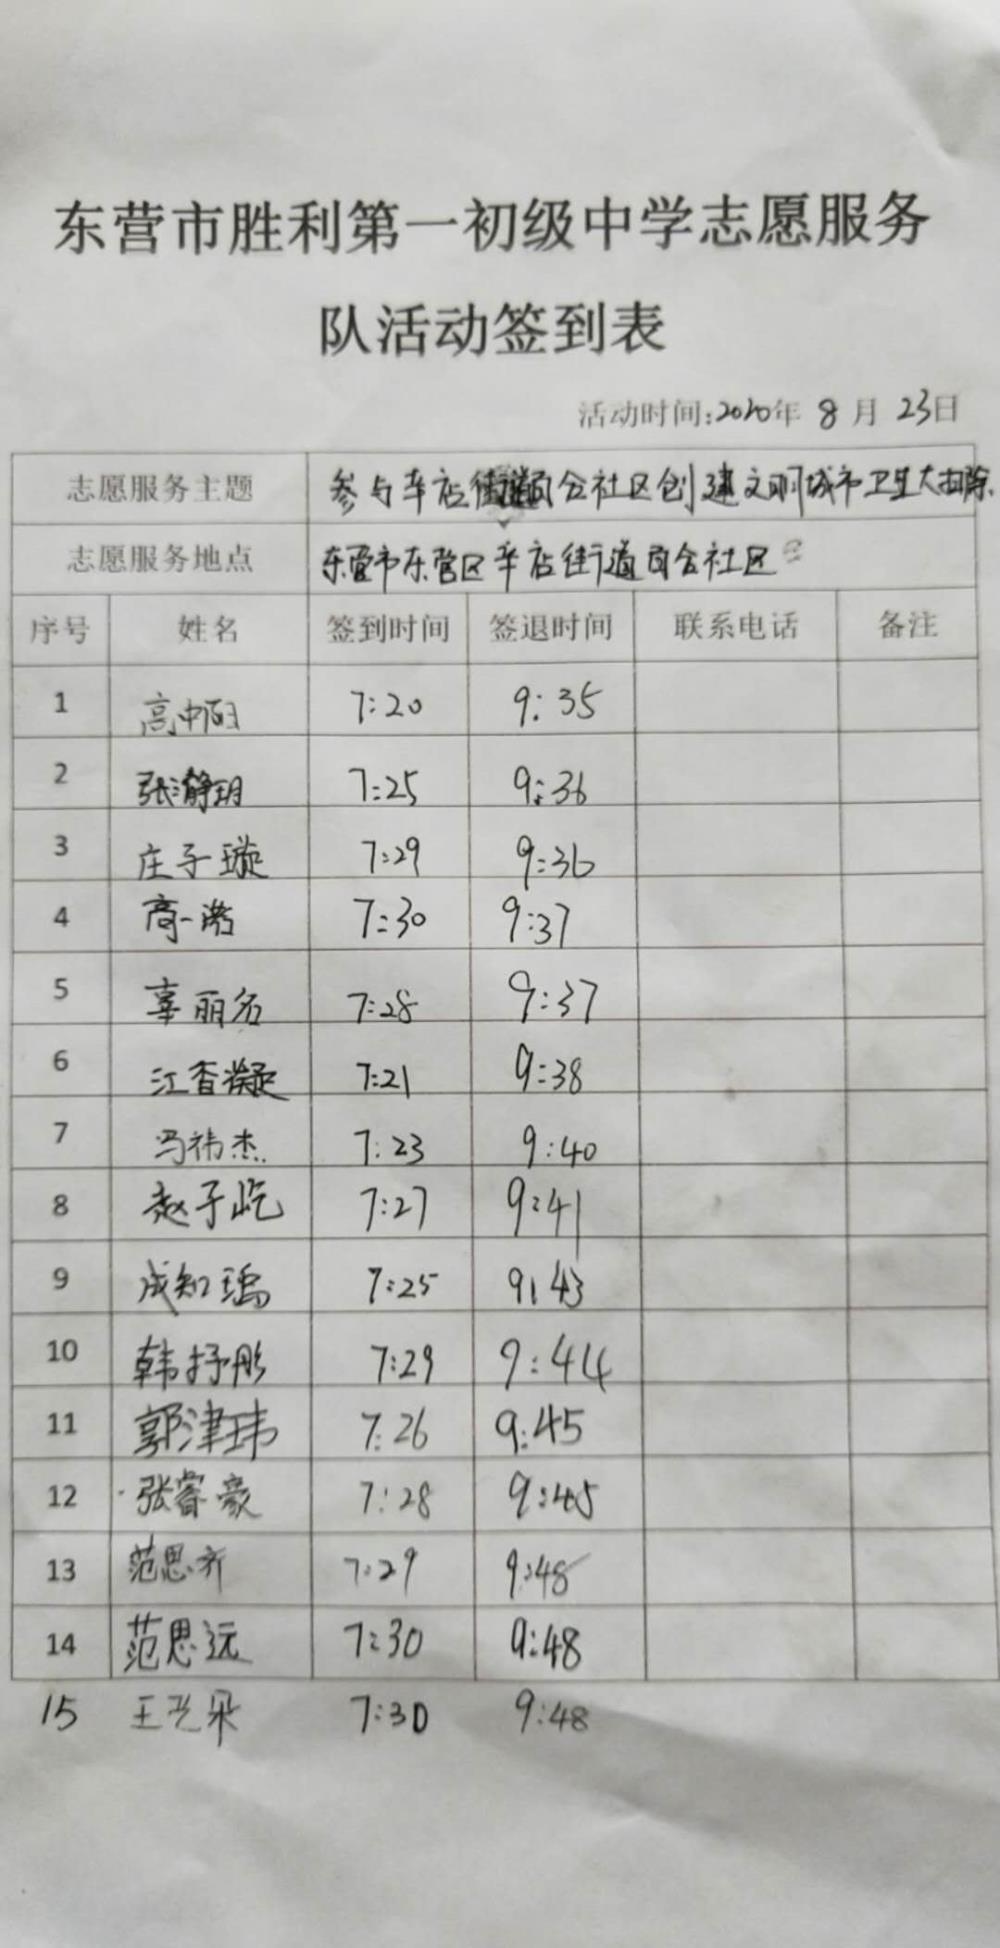 东营市胜利第一初级中学志愿服务
队活动签到表
活动时间:2020年 8 月 23日
志愿服务主题 参与辛店街道百合社区创建文明城市卫生大扫除
志愿服务地点 东营市东营区辛店街道百合社区
序号 姓名 签到时间 签退时间 联系电话 备注
1 高 7:20 9:35
2 张静玥 7:25 9:36
3 庄子璇 7:29 9:36
4 高一 7:30 9:37
5 辜丽名 7:28 9:37
6 江香凝 7:21 9:38
7 冯祎杰 7:23 9:40
8 赵子屹 7:27 9:41
9 成知瑀 7:25 9:43
10 韩抒彤 7:29 9:44
11 郭津玮 7:26 9:45
12 张睿豪 7:28 9:45
13 范思齐 7:29 9:48
14 范思远 7:30 9:48
15 王艺朵 7:30 9:48